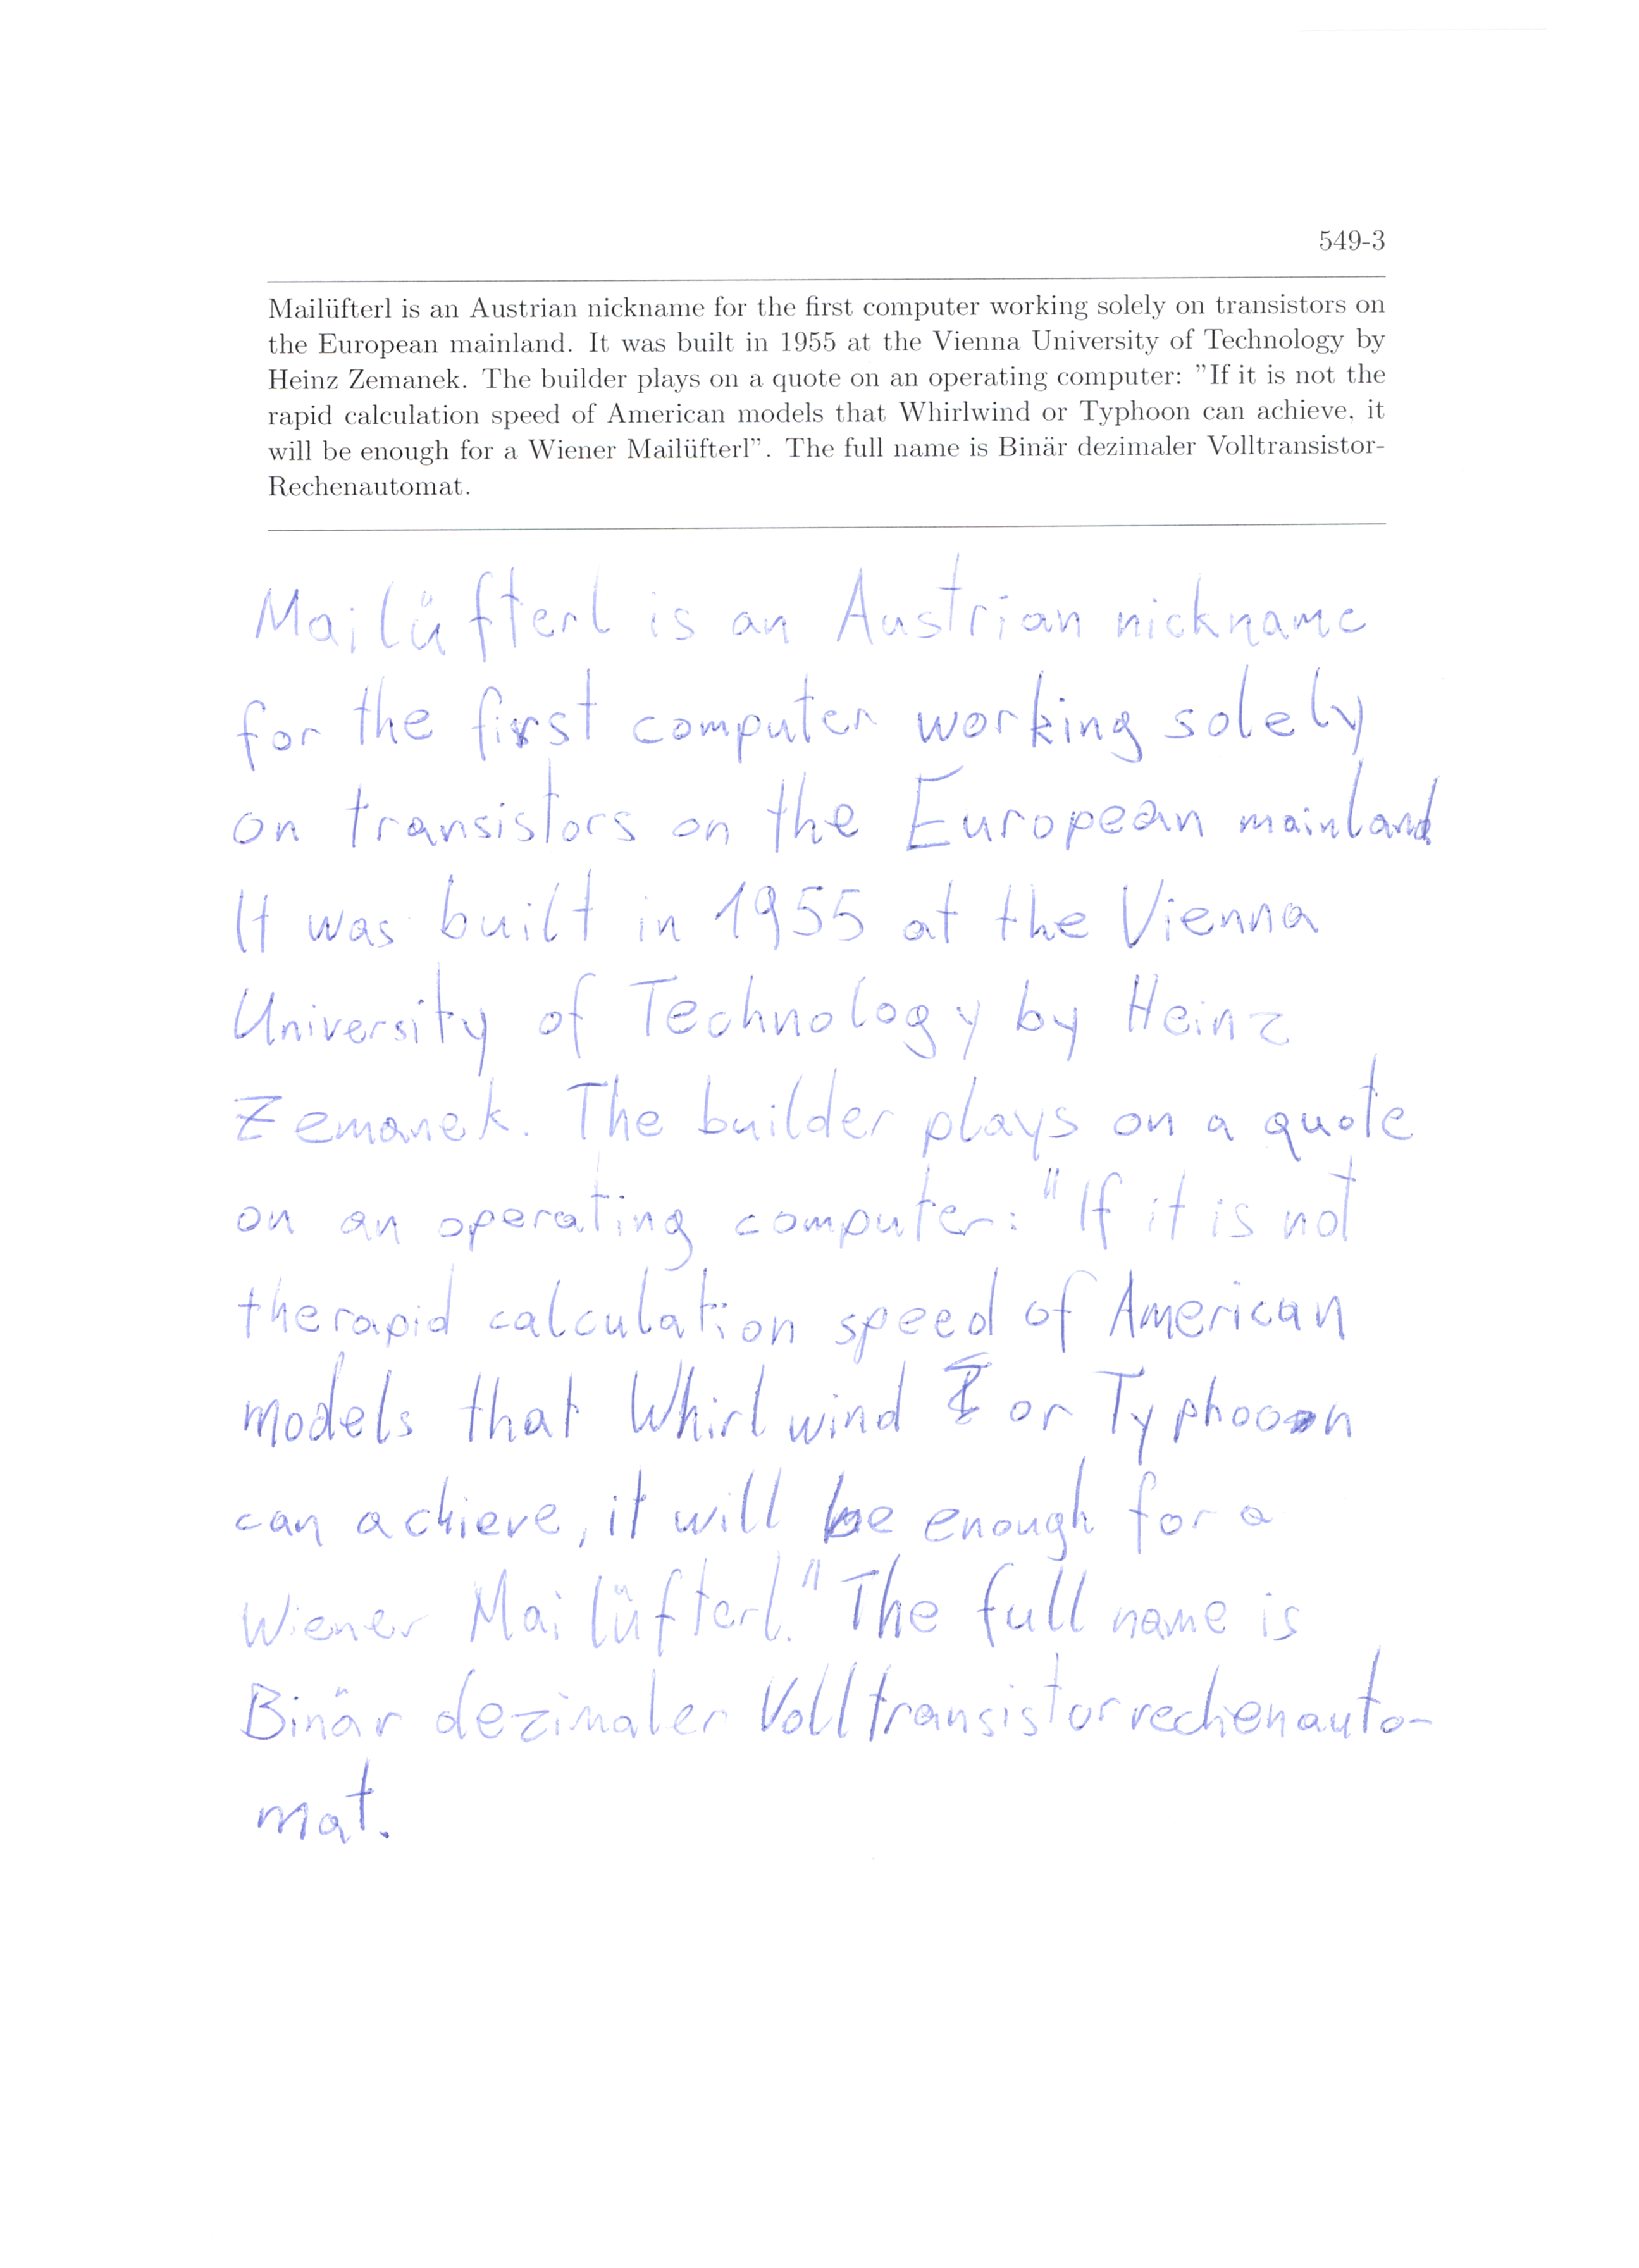 549-3
Mailüfterl is an Austrian nickname for the first computer working solely on transistors on
the European mainland. It was built in 1955 at the Vienna University of Technology by
Heinz Zemanek. The builder plays on a quote on an operating computer: "If it is not the
rapid calculation speed of American models that Whirlwind or Typhoon can achieve, it
will be enough for a Wiener Mailüfterl". The full name is Binär dezimaler Volltransistor-
Rechenautomat.
Mailüfterl is an Austrian nickname
for the first computer working solely
on transistors on the European mainland.
It was built in 1955 at the Vienna
University of Technology by Heinz
Zemanek. The builder plays on a quote
on an operating computer: "If it is not
the rapid calculation speed of American
models that Whirlwind or Typhoon
can achieve, it will be enough for a
Wiener Mailüfterl." The full name is
Binär dezimaler Volltransistorrechenauto-
mat.